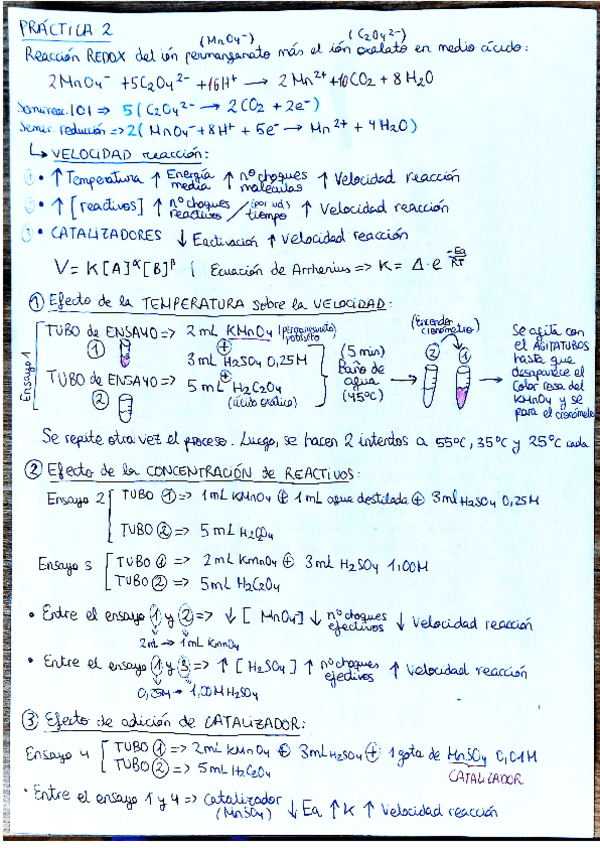 PRÁCTICA 2
(MnO₄⁻) (C₂O₄²⁻)
Reacción REDOX del ión permanganato más el ión oxalato en medio ácido:
2MnO₄⁻ + 5C₂O₄²⁻ + 16H⁺ → 2Mn²⁺ + 10CO₂ + 8H₂O
5(C₂O₄²⁻ → 2CO₂ + 2e⁻)
Semir. reducción => 2(MnO₄⁻ + 8H⁺ + 5e⁻ → Mn²⁺ + 4H₂O)
↳ VELOCIDAD reacción:
• ↑ Temperatura ↑ Energía media ↑ nº choques moléculas ↑ Velocidad reacción
• ↑ [reactivos] ↑ nº choques reactivos / (por ud) tiempo ↑ Velocidad reacción
• CATALIZADORES ↓ Eactivación ↑ Velocidad reacción
V = K[A]^α[B]^β | Ecuación de Arrhenius => K = A·e^(-Ea/RT)
① Efecto de la TEMPERATURA sobre la VELOCIDAD:
Ensayo 1
TUBO de ENSAYO ① => 2 mL KMnO₄ (permanganato potásico)
⊕
3 mL H₂SO₄ 0,25M
⊕
TUBO de ENSAYO ② => 5 mL H₂C₂O₄ (ácido oxálico)
(5 min) Baño de agua (45ºC) →
(Encender cronómetro)
② ①
→ Se agita con el AGITATUBOS hasta que desaparece el color rosa del KMnO₄ y se para el cronómetro
Se repite otra vez el proceso. Luego, se hacen 2 intentos a 55ºC, 35ºC y 25ºC cada
② Efecto de la CONCENTRACIÓN de REACTIVOS:
Ensayo 2 [ TUBO ① => 1 mL KMnO₄ ⊕ 1 mL agua destilada ⊕ 3 ml H₂SO₄ 0,25M
TUBO ② => 5 mL H₂C₂O₄
Ensayo 3 [ TUBO ① => 2 mL KmnO₄ ⊕ 3 mL H₂SO₄ 1,00M
TUBO ② => 5 mL H₂C₂O₄
• Entre el ensayo ① y ② => ↓ [MnO₄⁻] ↓ nº choques efectivos ↓ Velocidad reacción
2mL → 1mL KmnO₄
• Entre el ensayo ① y ③ => ↑ [H₂SO₄] ↑ nº choques efectivos ↑ Velocidad reacción
0,25M → 1,00M H₂SO₄
③ Efecto de adición de CATALIZADOR:
Ensayo 4 [ TUBO ① => 2 mL KMnO₄ ⊕ 3 mL H₂SO₄ ⊕ 1 gota de MnSO₄ 0,01M
TUBO ② => 5 mL H₂C₂O₄
CATALIZADOR
• Entre el ensayo 1 y 4 => Catalizador (MnSO₄) ↓ Ea ↑ K ↑ Velocidad reacción